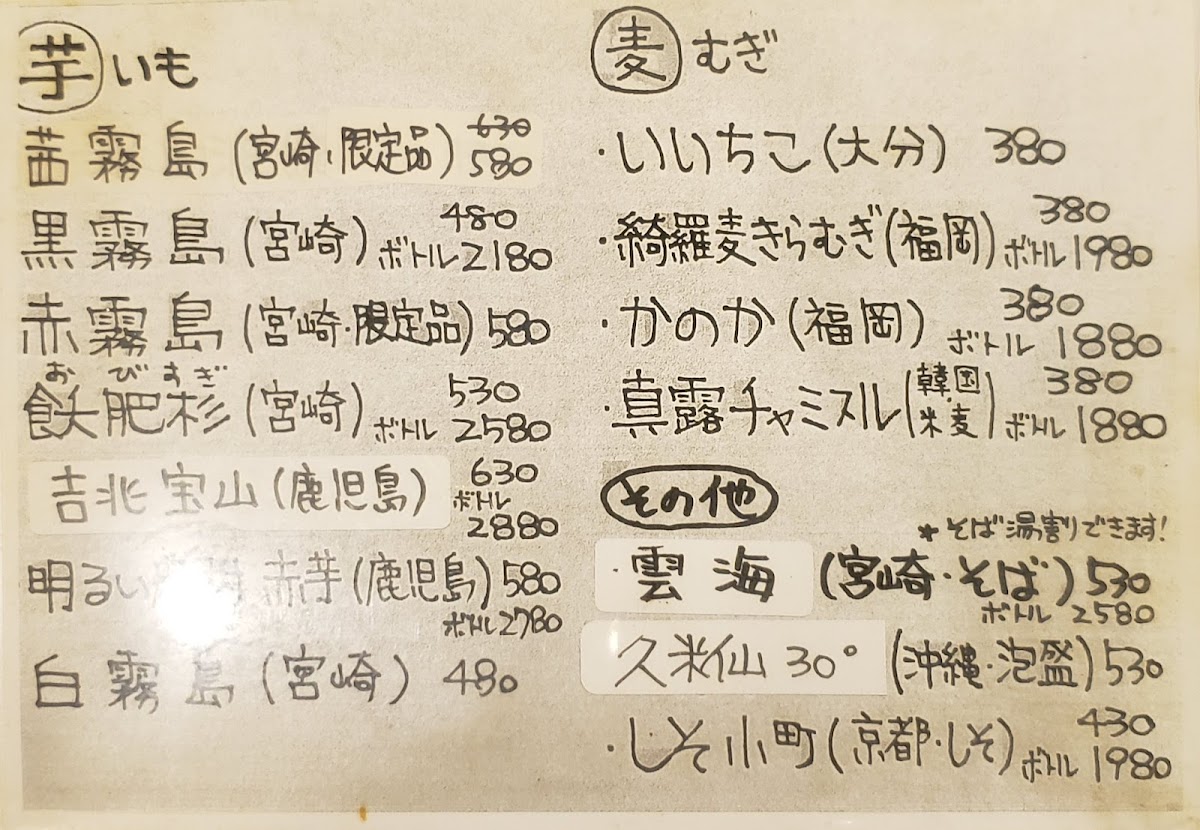 芋 いも
茜霧島(宮崎・限定品) 630 580
黒霧島(宮崎) 480 ボトル2180
赤霧島(宮崎・限定品) 580
おびすぎ
飫肥杉(宮崎) 530 ボトル2580
吉兆宝山(鹿児島) 630 ボトル 2880
明るい 赤芋(鹿児島) 580
ボトル2780
白霧島(宮崎) 480
麦 むぎ
・いいちこ(大分) 380
・綺羅麦きらむぎ(福岡) 380 ボトル1980
・かのか(福岡) 380 ボトル 1880
・真露チャミスル(韓国 米麦) 380 ボトル1880
その他
*そば湯割りできます!
・雲海(宮崎・そば) 530
ボトル 2580
久米仙 30° (沖縄・泡盛) 530
・しそ小町(京都・しそ) 430 ボトル 1980